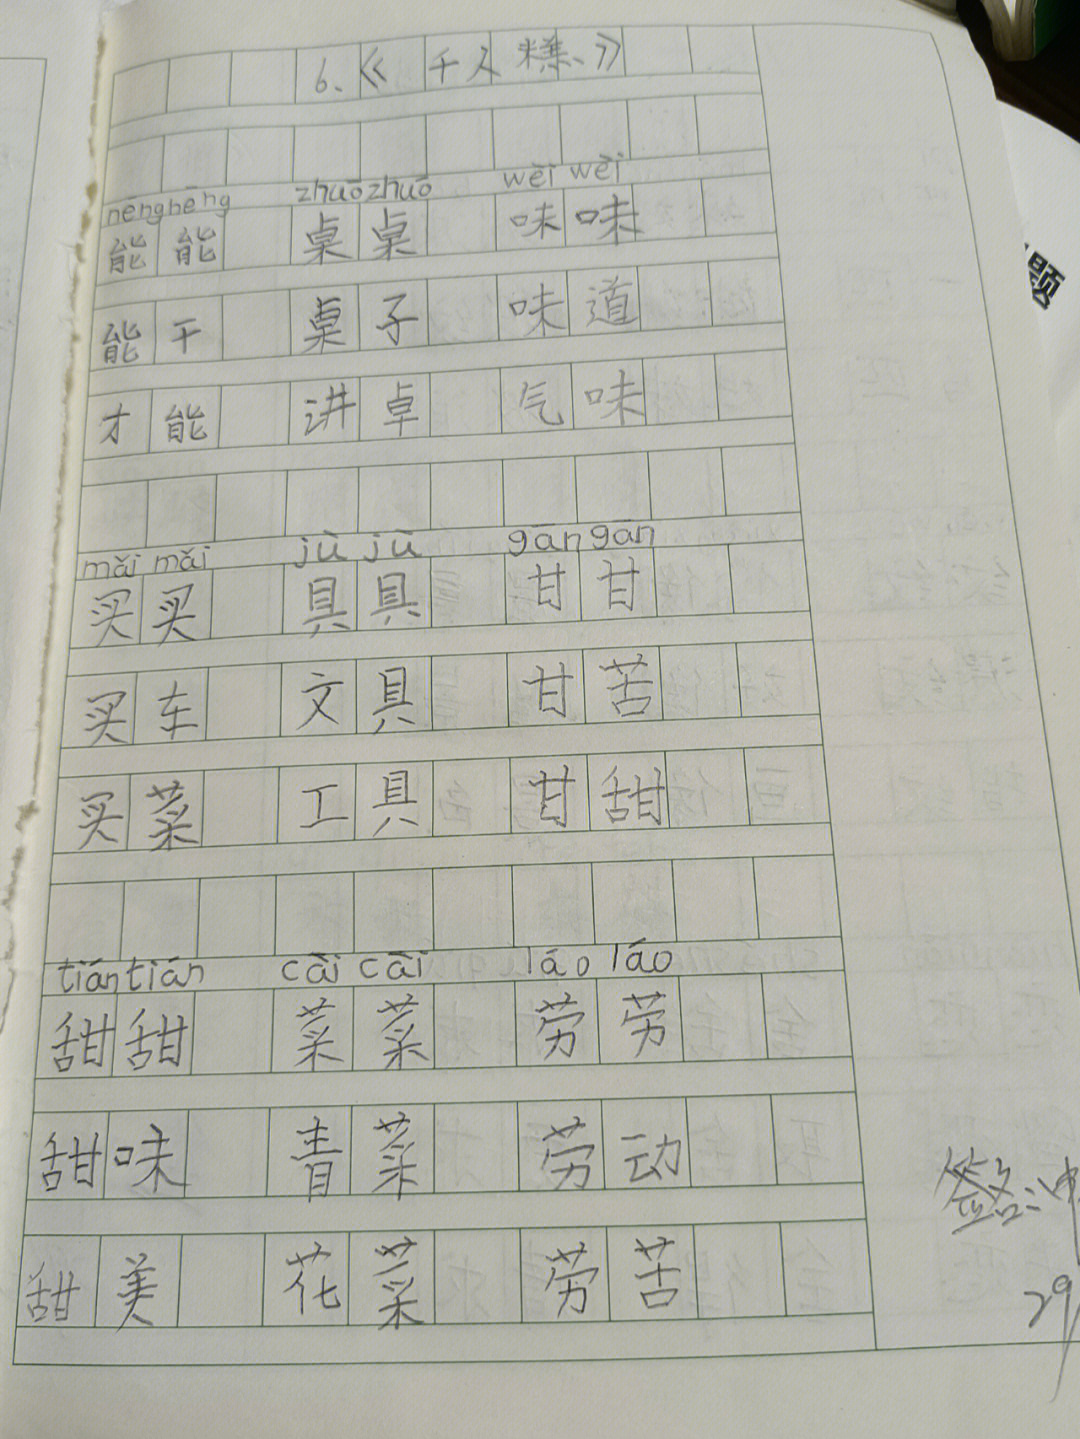 6、《千人糕、》
néng néng zhuō zhuō wèi wèi
能能 桌桌 味味
能干 桌子 味道
才能 讲卓 气味
mǎi mǎi jù jù gān gān
买买 具具 甘甘
买车 文具 甘苦
买菜 工具 甘甜
tián tián cài cài láo láo
甜甜 菜菜 劳劳
甜味 青菜 劳动
甜美 花菜 劳苦
签名:
29
题